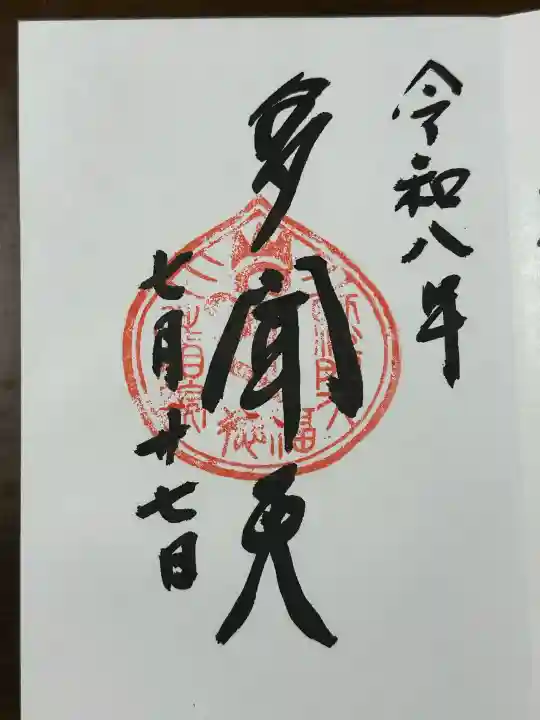 令和八年
多聞天
七月廿七日